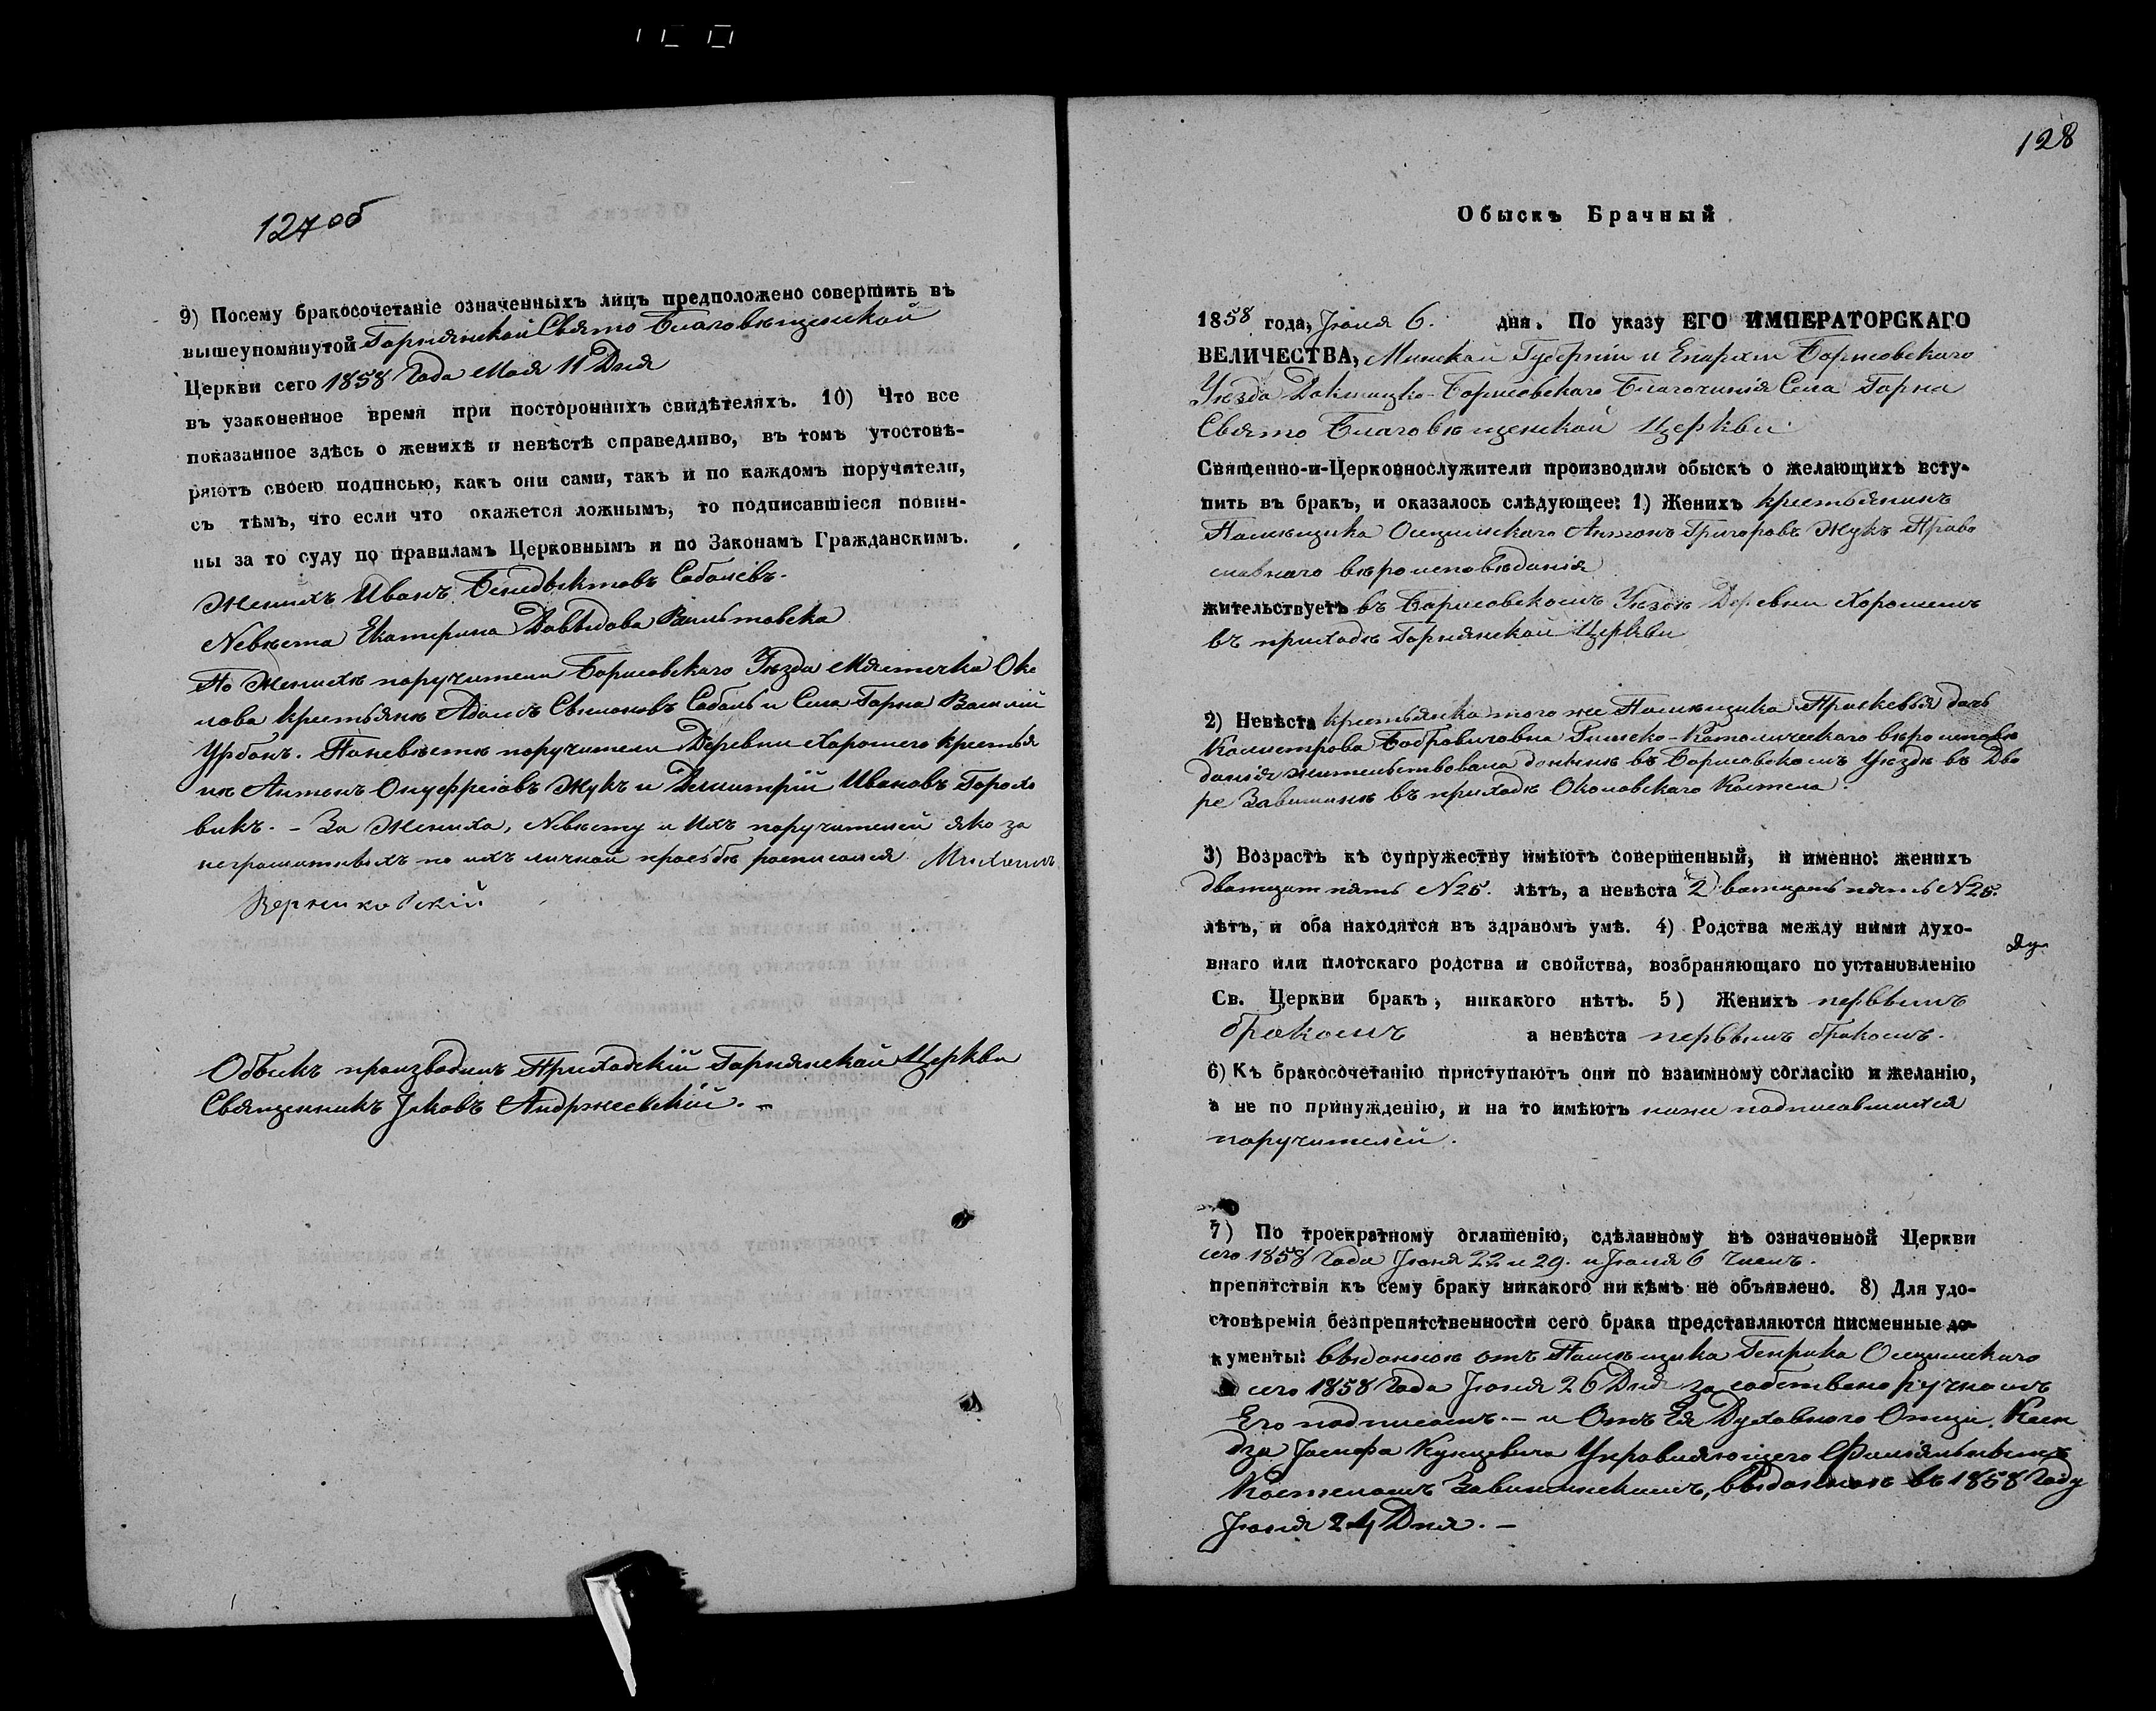 127 об
9) Посему бракосочетаніе означенныхъ лицъ предположено совершить въ
вышеупомянутой Горнянской Свято Благовѣщенской
Церкви сего 1858 Года Мая 11 Дня
въ узаконенное время при постороннихъ свидѣтеляхъ. 10) Что все
показанное здѣсь о женихѣ и невѣстѣ справедливо, въ томъ утостовѣ-
ряютъ своею подписью, какъ они сами, такъ и по каждомъ поручители,
съ тѣмъ, что если что окажется ложнымъ, то подписавшіеся повин-
ны за то суду по правиламъ Церковнымъ и по Законамъ Гражданскимъ.
Женихъ Иванъ Бенедыктовъ Соболевъ.
Невѣста Екатерина Давыдова
По Женихѣ поручители Борисовскаго Уѣзда Мястечка Око
лова крестьяне Адамъ Сымоновъ Соболь и Села Горна Василій
Урбанъ. По невѣстѣ поручители Деревни Хорошего крестья
не Антонъ Онуфреіовъ Жукъ и Демитрій Ивановъ Горохо
викъ. – За Жениха, Невѣсту и Ихъ поручителей яко за
неграмотныхъ по ихъ личной прозьбѣ росписался
Обыкъ производилъ Приходскій Горнянской Церкви
Священникъ Іаковъ Андржеевскій. –
128
Обыскъ Брачный
1858 года, Іюля 6. дня. По указу ЕГО ИМПЕРАТОРСКАГО
ВЕЛИЧЕСТВА, Минской Губерніи и Епархіи Борисовскаго
Уѣзда Докшицко-Борисовскаго Благочинія Села Горна
Свято Благовѣщенской Церкви
Священно-и-Церковнослужители производили обыскъ о желающихъ всту-
пить въ бракъ, и оказалось слѣдующее: 1) Женихъ крестьянинъ
Помѣщика Антонъ Григоровъ Жукъ Право
славнаго вѣроисповѣданія
жительствуетъ въ Борисовскомъ Уѣздѣ Деревни Хорошемъ
въ приходѣ Горнянской Церкви
2) Невѣста крестьянка того же Помѣщика Праскевья дочь
Калистрова Бобровичовна Римско-Католическаго вѣроисповѣ
данія жительствовала донынѣ въ Борисовскомъ Уѣздѣ въ Дво
ре Завишинѣ въ приходѣ Околовскаго Костела.
3) Возрастъ къ супружеству имѣютъ совершенный, и именно: женихъ
дватцат пять N25. лѣтъ, а невѣста Дватцать пять N25.
лѣтъ, и оба находятся въ здравомъ умѣ. 4) Родства между ними духо-
внаго или плотскаго родства и свойства, возбраняющаго по установленію
Св. Церкви бракъ, никакого нѣтъ. 5) Женихъ первымъ
бракомъ а невѣста первымъ бракомъ.
6) Къ бракосочетанію приступаютъ они по взаимному согласію и желанію,
а не по принужденію, и на то имѣютъ ниже подписавшихся
поручителей.
7) По троекратному оглашенію, сдѣланному въ означенной Церкви
сего 1858 Года Іюня 22 и 29. и Іюля 6 Чисъ.
препятствія къ сему браку никакого ни кѣмъ не объявлено. 8) Для удо-
стовѣренія безпрепятственности сего брака представляются писменные до-
кументы: выданное отъ Помѣщика Генрика
сего 1858 Года Іюня 26 Дня за собственоручнымъ
Его подписомъ. – и Отъ Ея Духовного Отца. Ксен
дза Іосифа Кунцевича Управляющего Филіяльнымъ
Костеломъ Завишинскимъ, выданное въ 1858 Году
Іюня 24 Дня. –